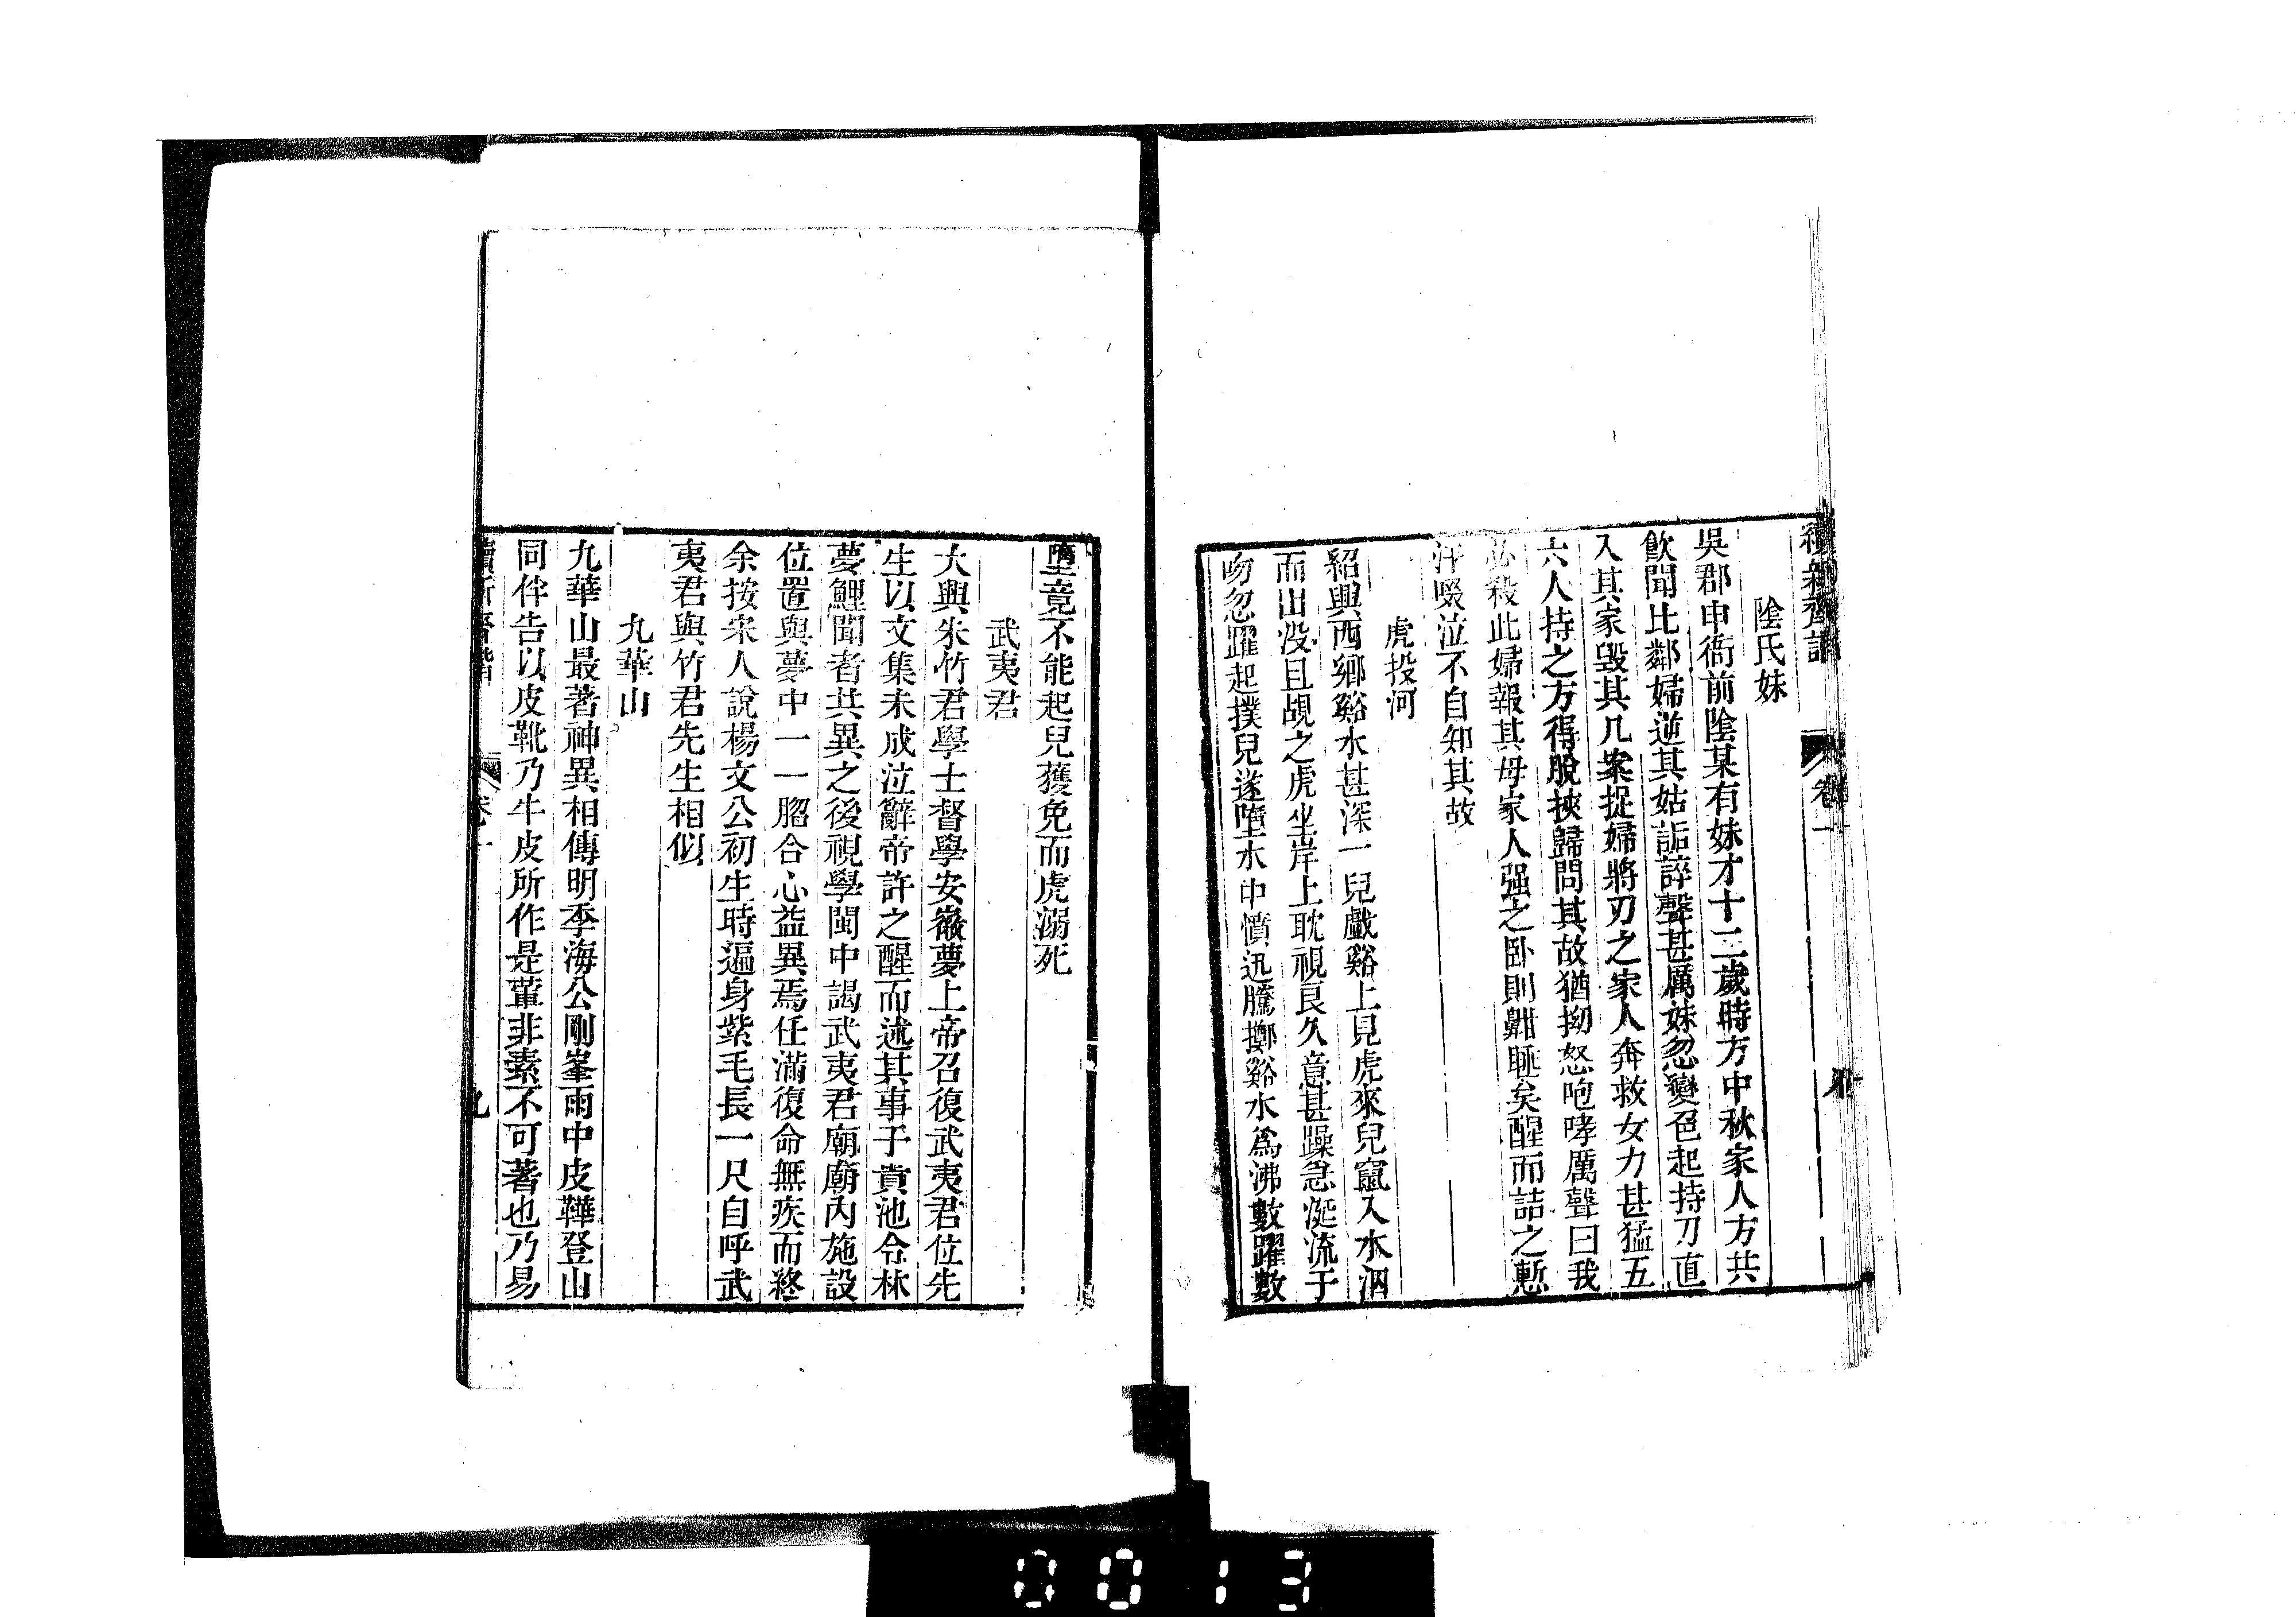 續新齊諧 卷一
陰氏妹
吳郡申衙前陰某有妹才十二歲時方中秋家人方共
飲聞比鄰婦逆其姑詬誶聲甚厲妹忽變色起持刀直
入其家毀其几案捉婦將刃之家人奔救女力甚猛五
六人持之方得脫挾歸問其故猶拗怒咆哮厲聲曰我
必殺此婦報其母家人强之卧則鼾睡矣醒而詰之慙
汗啜泣不自知其故
虎投河
紹興西鄉谿水甚深一兒戲谿上見虎來兒竄入水泅
而出沒且覘之虎坐岸上耽視良久意甚躁急涎流于
吻忽躍起撲兒遂墮水中憤迅騰擲谿水爲沸數躍數
墮竟不能起兒獲免而虎溺死
武夷君
大興朱竹君學士督學安徽夢上帝召復武夷君位先
生以文集未成泣辭帝許之醒而述其事于貴池令林
夢鯉聞者共異之後視學閩中謁武夷君廟廟內施設
位置與夢中一一脗合心益異焉任滿復命無疾而終
余按宋人說楊文公初生時遍身紫毛長一尺自呼武
夷君與竹君先生相似
九華山
九華山最著神異相傳明季海公剛峯雨中皮鞾登山
同伴告以皮靴乃牛皮所作是葷非素不可著也乃易
續新齊諧 卷一 九
0013